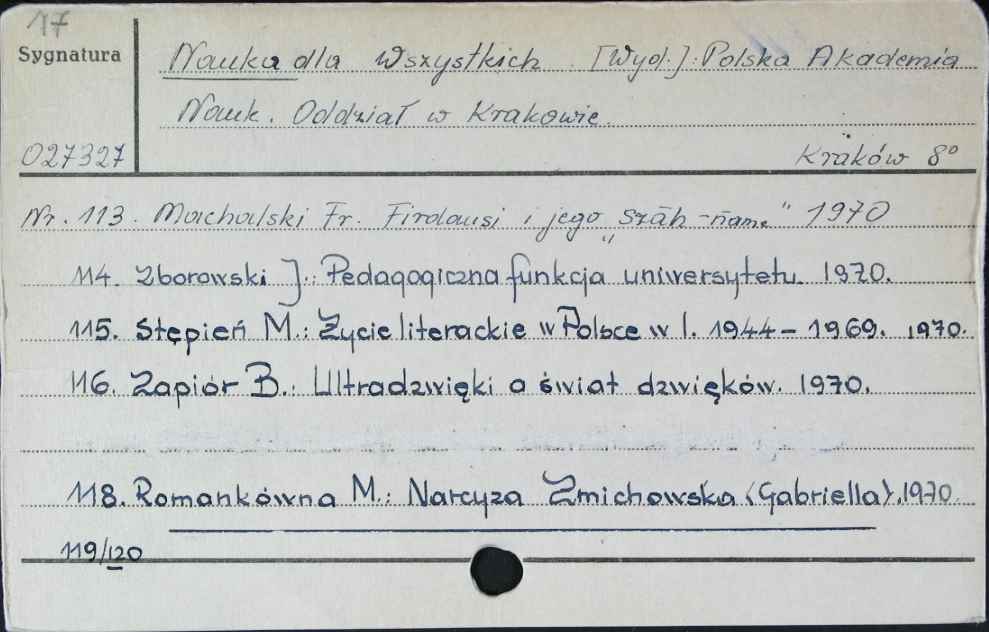 17
Sygnatura
Nauka dla Wszystkich. [Wyd.]: Polska Akademia
Nauk. Oddział w Krakowie.
027327
Kraków 8°
Nr. 113. Machalski Fr. Firdausi i jego „Szāh-nāme" 1970
114. Zborowski J.: Pedagogiczna funkcja uniwersytetu. 1970.
115. Stępień M.: Życie literackie w Polsce w l. 1944-1969. 1970.
116. Zapiór B.: Ultradzwięki a świat dzwięków. 1970.
118. Romankówna M.: Narcyza Żmichowska (Gabriella). 1970.
119/120